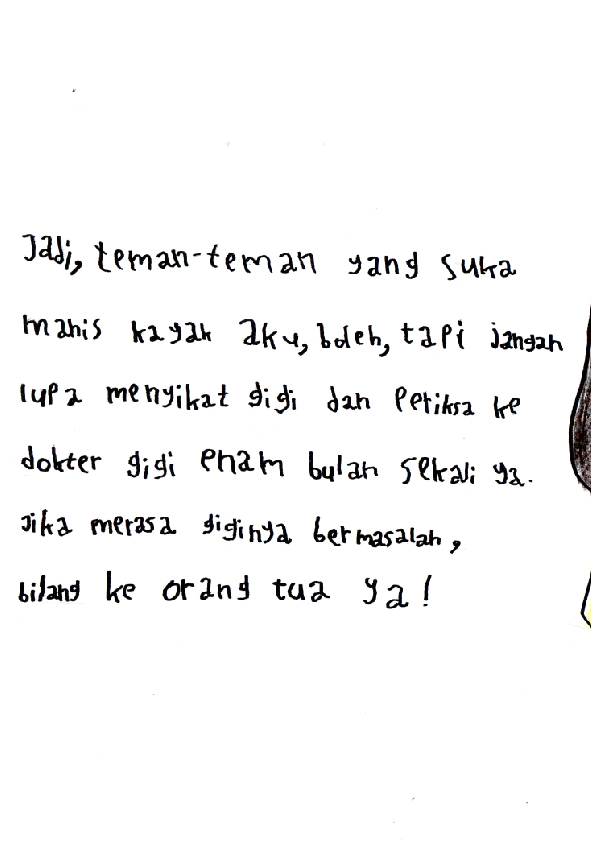 Jadi, teman-teman yang suka
manis kayak aku, boleh, tapi jangan
lupa menyikat gigi dan Periksa ke
dokter gigi enam bulan sekali ya.
Jika merasa giginya bermasalah,
bilang ke orang tua ya!